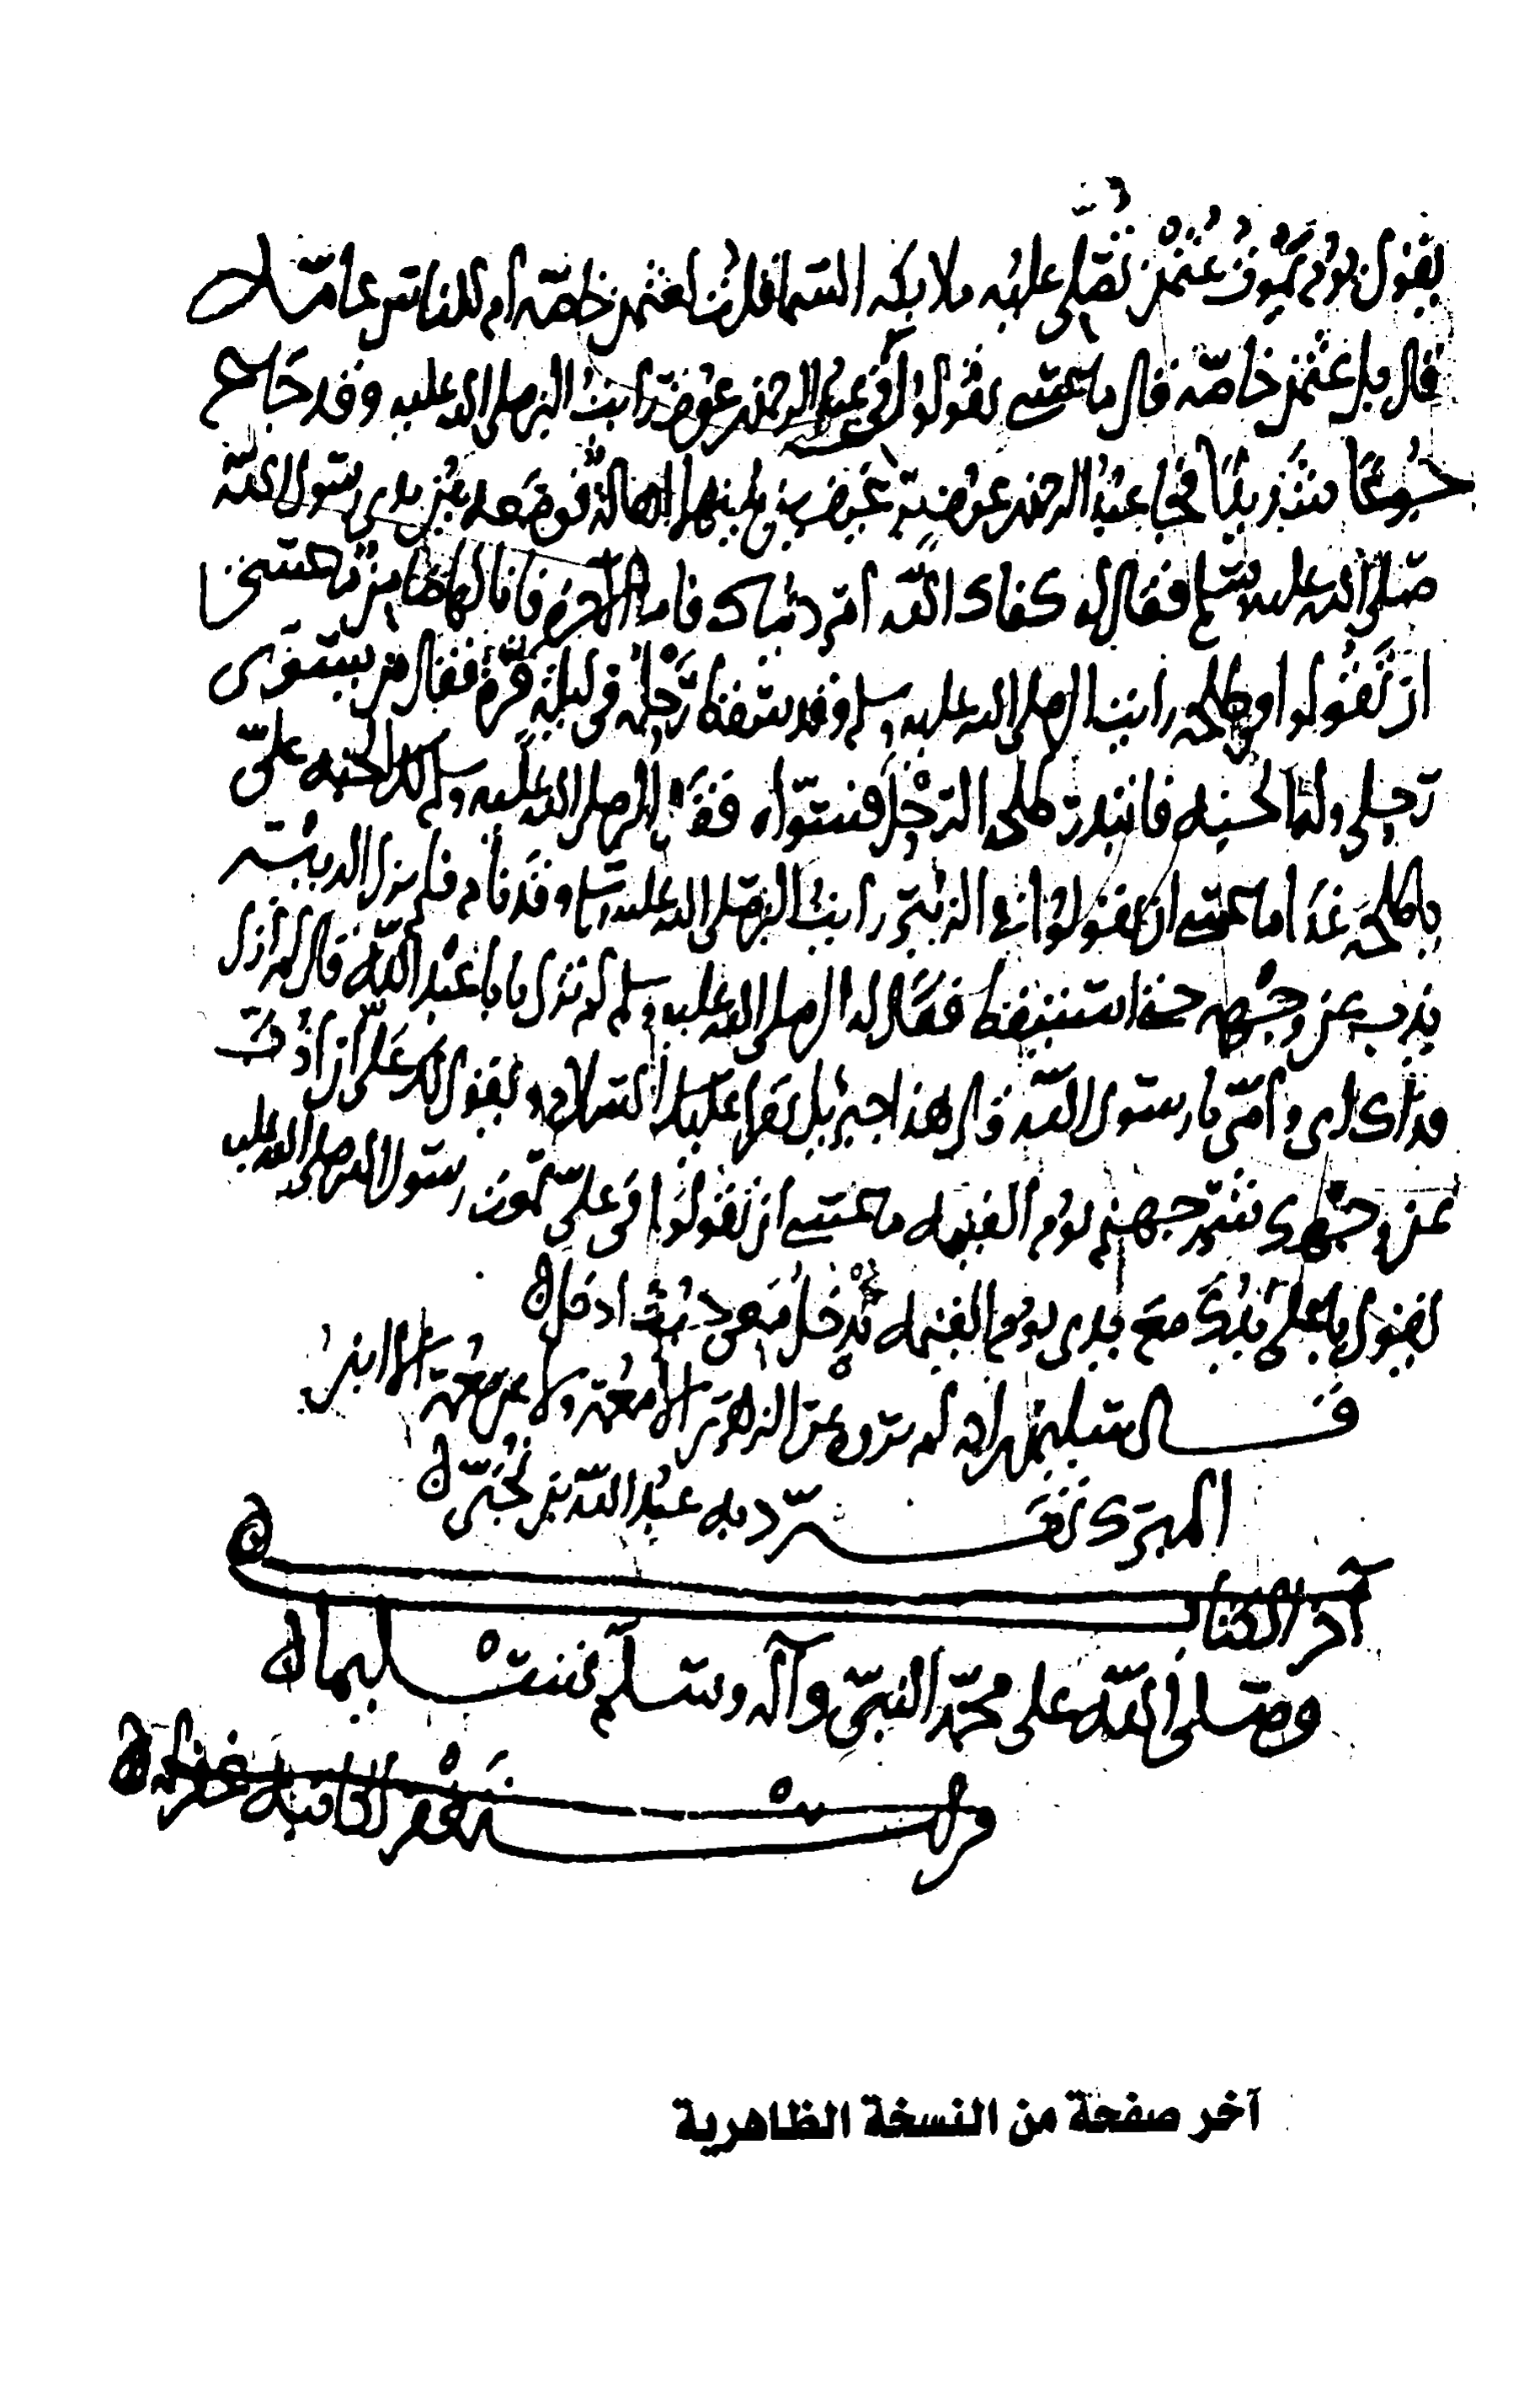 يقول يوم يموت عثمن تصلي عليه ملايكه السما قلت لعثمن خاصة أم للناس عامة
قال بل عثمن خاصة قال ما عسى تقولوا في عبد الرحمن بن عوف رايت النبي صلى الله عليه وقد جاع
جوعا شديدا فجا عبد الرحمن بن عوف برغيفين بينهما اهالة فوضعه بين يدي رسول الله
صلى الله عليه وسلم فقال له كفاك الله امر دنياك فاما الآخرة فانا لها ضامن ما عسى
ان تقولوا في طلحة رايت النبي صلى الله عليه وسلم وقد سقط رحله في ليلة قرة فقال من يستوي
رحلي وله الجنة فابتدر طلحة الرحل فسواه فقال النبي صلى الله عليه وسلم لك الجنة علي
يا طلحة غدا ما عسى ان تقولوا في الزبير رايت النبي صلى الله عليه وسلم وقد نام فلم يزل الزبير
يذب عن وجهه حتى استيقظ فقال له النبي صلى الله عليه وسلم لم تزل يا با عبد الله قال لم ازل
فداك ابي وامي يا رسول الله قال هذا جبريل يقرا عليك السلام ويقول لك علي ان اذب
عن وجهك شرر جهنم يوم القيمه ما عسى ان تقولوا في علي سمعت رسول الله صلى الله عليه
يقول يا علي يدك مع يدي يوم القيمه تدخل معي حيث ادخل
قال سليمن لم يروه عن الزهري الا معمر ولا عن معمر الا ابن
المبرك تفرد به عبد الله بن
آخر الكتاب
وصلى الله على محمد النبي وآله وسلم
آخر صفحة من النسخة الظاهرية